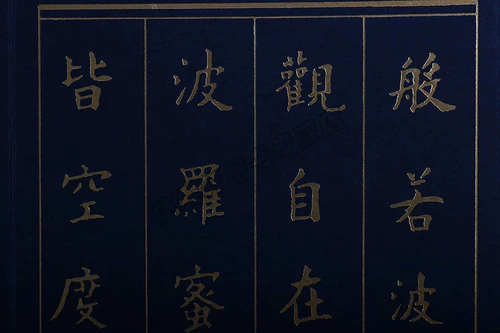 般若波
觀自在
波羅蜜
皆空度